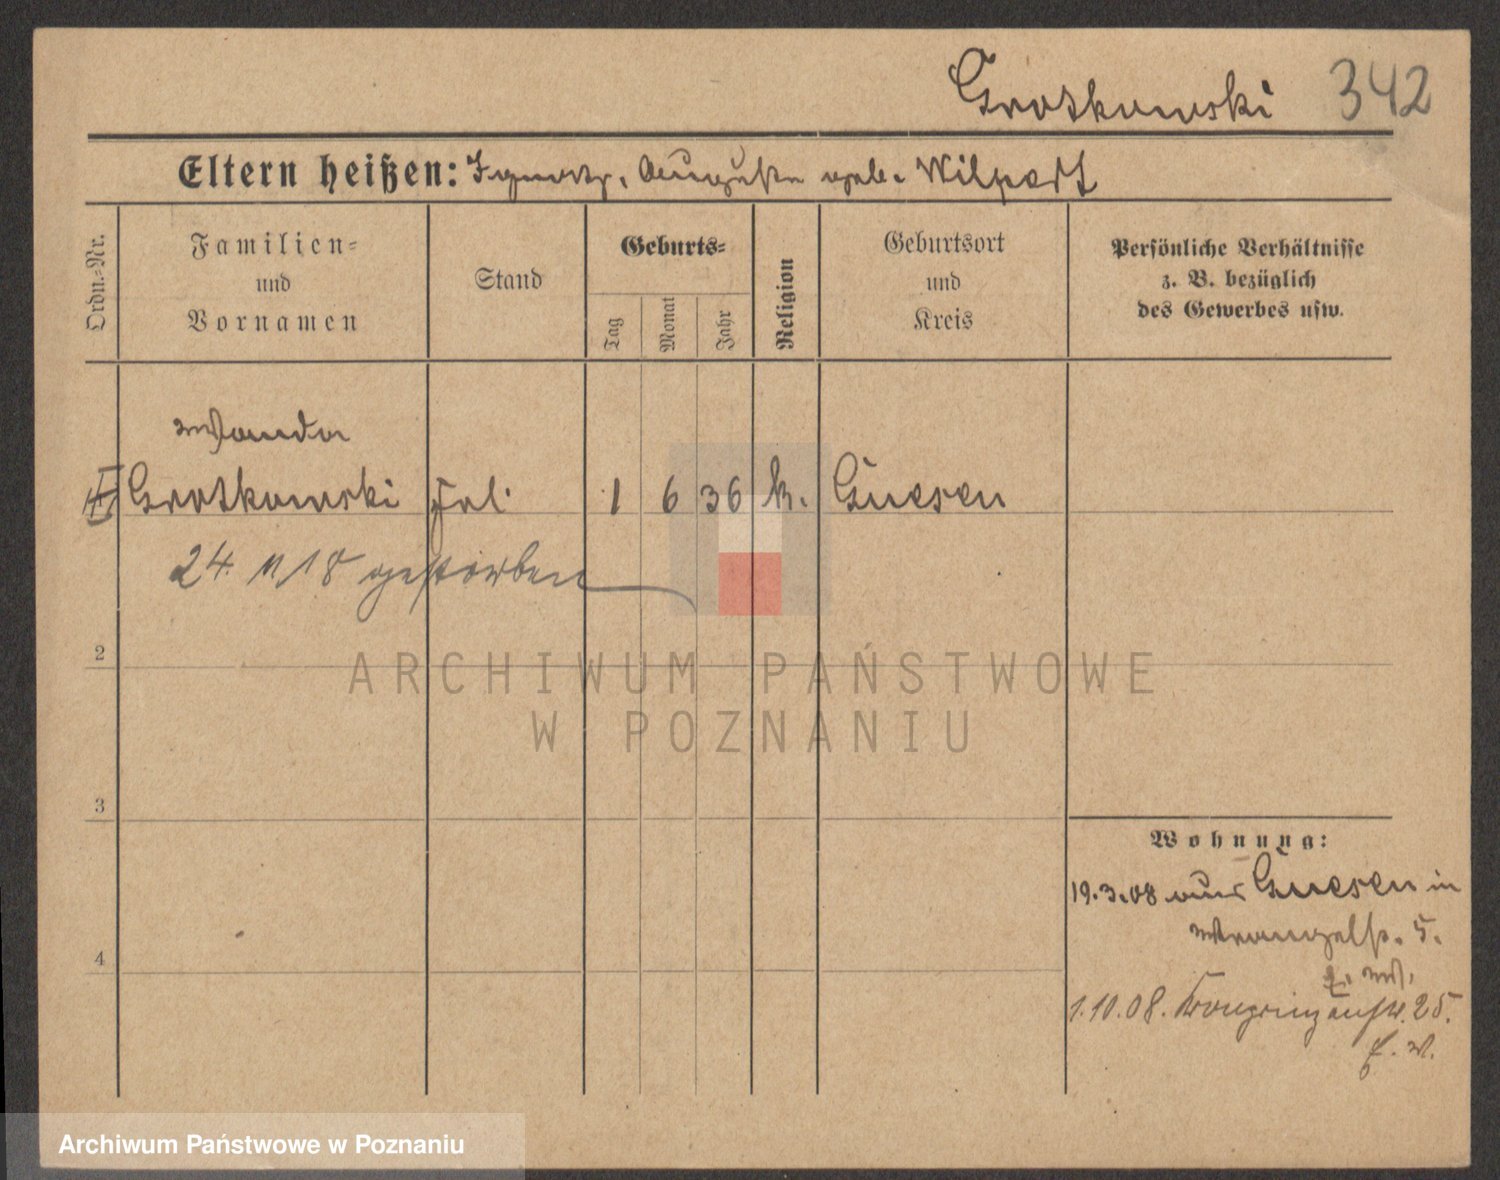 Grotkowski 342
Eltern heißen: Ignatz, Auguste geb. Wilpert
Ordn.-Nr.
Familien-
und
Vornamen
Stand
Geburts-
Tag
Monat
Jahr
Religion
Geburtsort
und
Kreis
Persönliche Verhältnisse
z. B. bezüglich
des Gewerbes usw.
Wanda
Grotkowski Frl. 1 6 36 k. Gnesen
24. 11/18 gestorben
2
3
4
ARCHIWUM PAŃSTWOWE
W POZNANIU
Wohnung:
19.3.08 aus Gnesen in
Wrangelstr. 5.
1.10.08. Kronprinzenstr. 25.
Archiwum Państwowe w Poznaniu